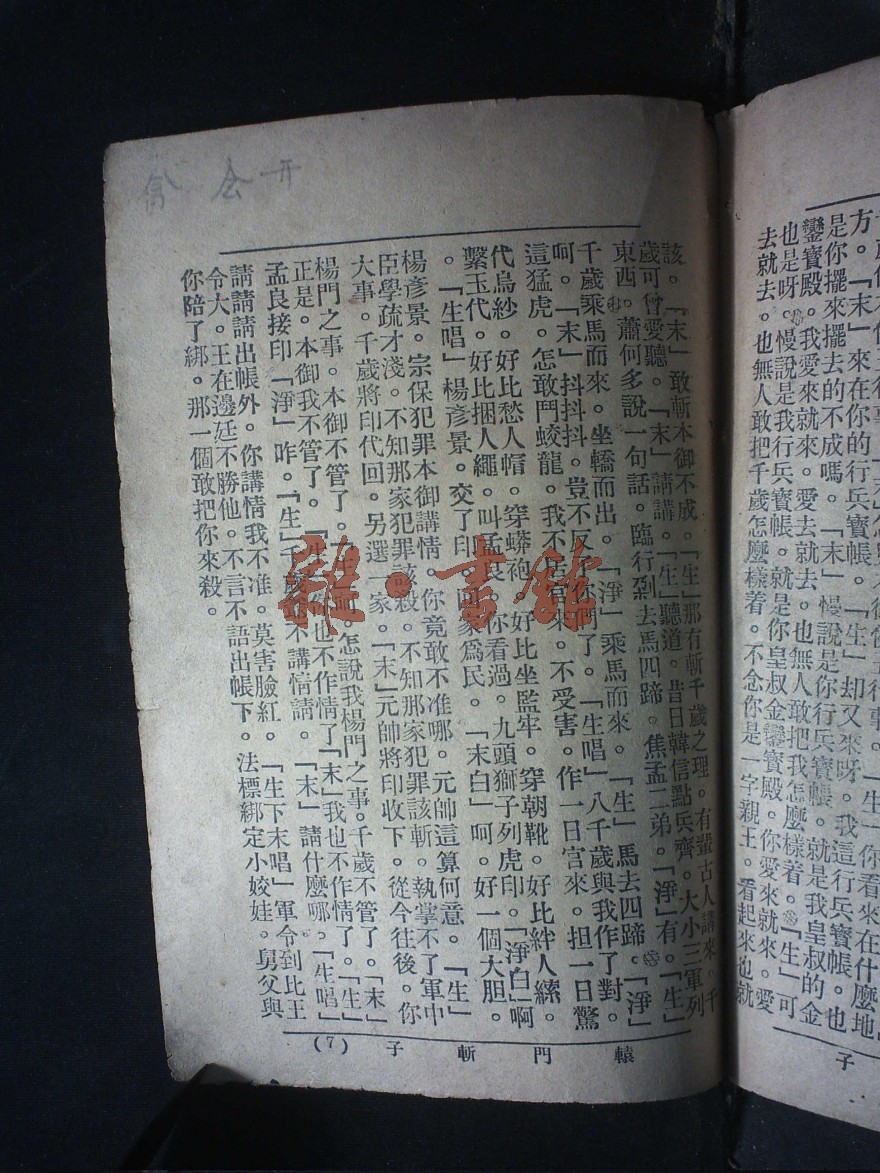 是你擺來擺去的不成嗎。「末」慢說是你行兵寶帳。就是我皇叔的金
鑾寶殿。我愛來就來。愛去就去。也無人敢把我怎麼樣着。「生」可
也是呀。慢說是我行兵寶帳。就是你皇叔金鑾寶殿。你愛來就來。愛
去就去。也無人敢把千歲怎麼樣着。不念你是一字親王。看起來也就
子
該。「末」敢斬本御不成。「生」那有斬千歲之理。有輩古人講來。千
歲可曾愛聽。「末」請講。「生」聽道。昔日韓信點兵齊。大小三軍列
東西。蕭何多說一句話。臨行剁去馬四蹄。焦孟二弟。「淨」有。「生」
千歲乘馬而來。坐轎而出。「淨」乘馬而來。「生」馬去四蹄。「淨」
呵。「末」抖抖抖。豈不反了你們了。「生唱」八千歲與我作了對。
這猛虎。怎敢鬥蛟龍。我不居官來。不受害。作一日宮來。担一日驚
代烏紗。好比愁人帽。穿蟒袍。好比坐監牢。穿朝靴。好比絆人縧。
繫玉代。好比捆人繩。叫孟良。你看過。九頭獅子列虎印。「淨白」啊
。「生唱」楊彥景。交了印。回家爲民。「末白」呵。好一個大胆。
楊彥景。宗保犯罪本御講情。你竟敢不准哪。元帥這算何意。「生」
臣學疏才淺。不知那家犯罪該殺。不知那家犯罪該斬。執掌不了軍中
大事。千歲將印代回。另選一家。「末」元帥將印收下。從今往後。你
楊門之事。本御不管了。「生」怎說我楊門之事。千歲不管了。「末」
正是。本御我不管了。「生」也不作情了「末」我也不作情了。「生」
孟良接印「淨」咋。「生」千歲不講情請。「末」請什麼哪。「生唱」
請請請出帳外。你講情我不准。莫害臉紅。「生下末唱」軍令到比王
令大。王在邊廷不勝他。不言不語出帳下。法標綁定小姣娃。舅父與
你陪了綁。那一個敢把你來殺。
轅門斬子
(7)
雜·書館